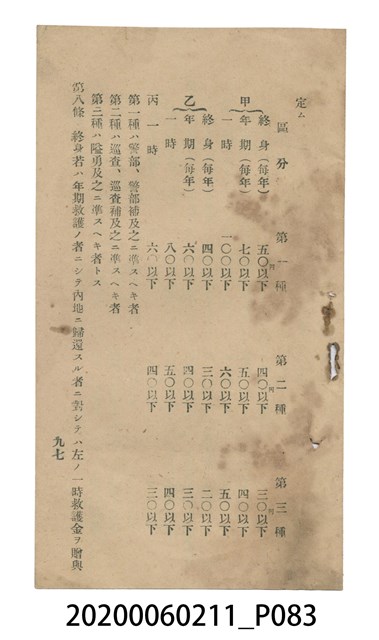 定ム
區分 第一種 第二種 第三種
甲 終身(每年) 五〇以下 四〇以下 三〇以下
年期(每年) 七〇以下 五〇以下 四〇以下
一時 一〇〇以下 六〇以下 五〇以下
乙 終身(每年) 四〇以下 三〇以下 二〇以下
年期(每年) 六〇以下 四〇以下 三〇以下
一時 八〇以下 五〇以下 四〇以下
丙 一時 六〇以下 四〇以下 三〇以下
第一種ハ警部、警部補及之ニ準スヘキ者
第二種ハ巡査、巡査補及之ニ準スヘキ者
第三種ハ隘勇及之ニ準スヘキ者トス
第八條 終身若ハ年期救護ノ者ニシテ內地ニ歸還スル者ニ對シテハ左ノ一時救護金ヲ贈與
九七
20200060211_P083